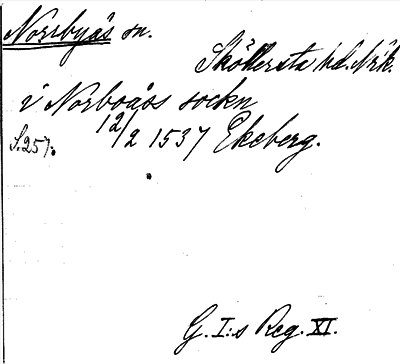 Norrbyås sn.
Sköllersta hd. Nrk.
i Norboåss sockn
S. 257. 12/2 1537 Ekeberg.
G. I:s Reg. XI.